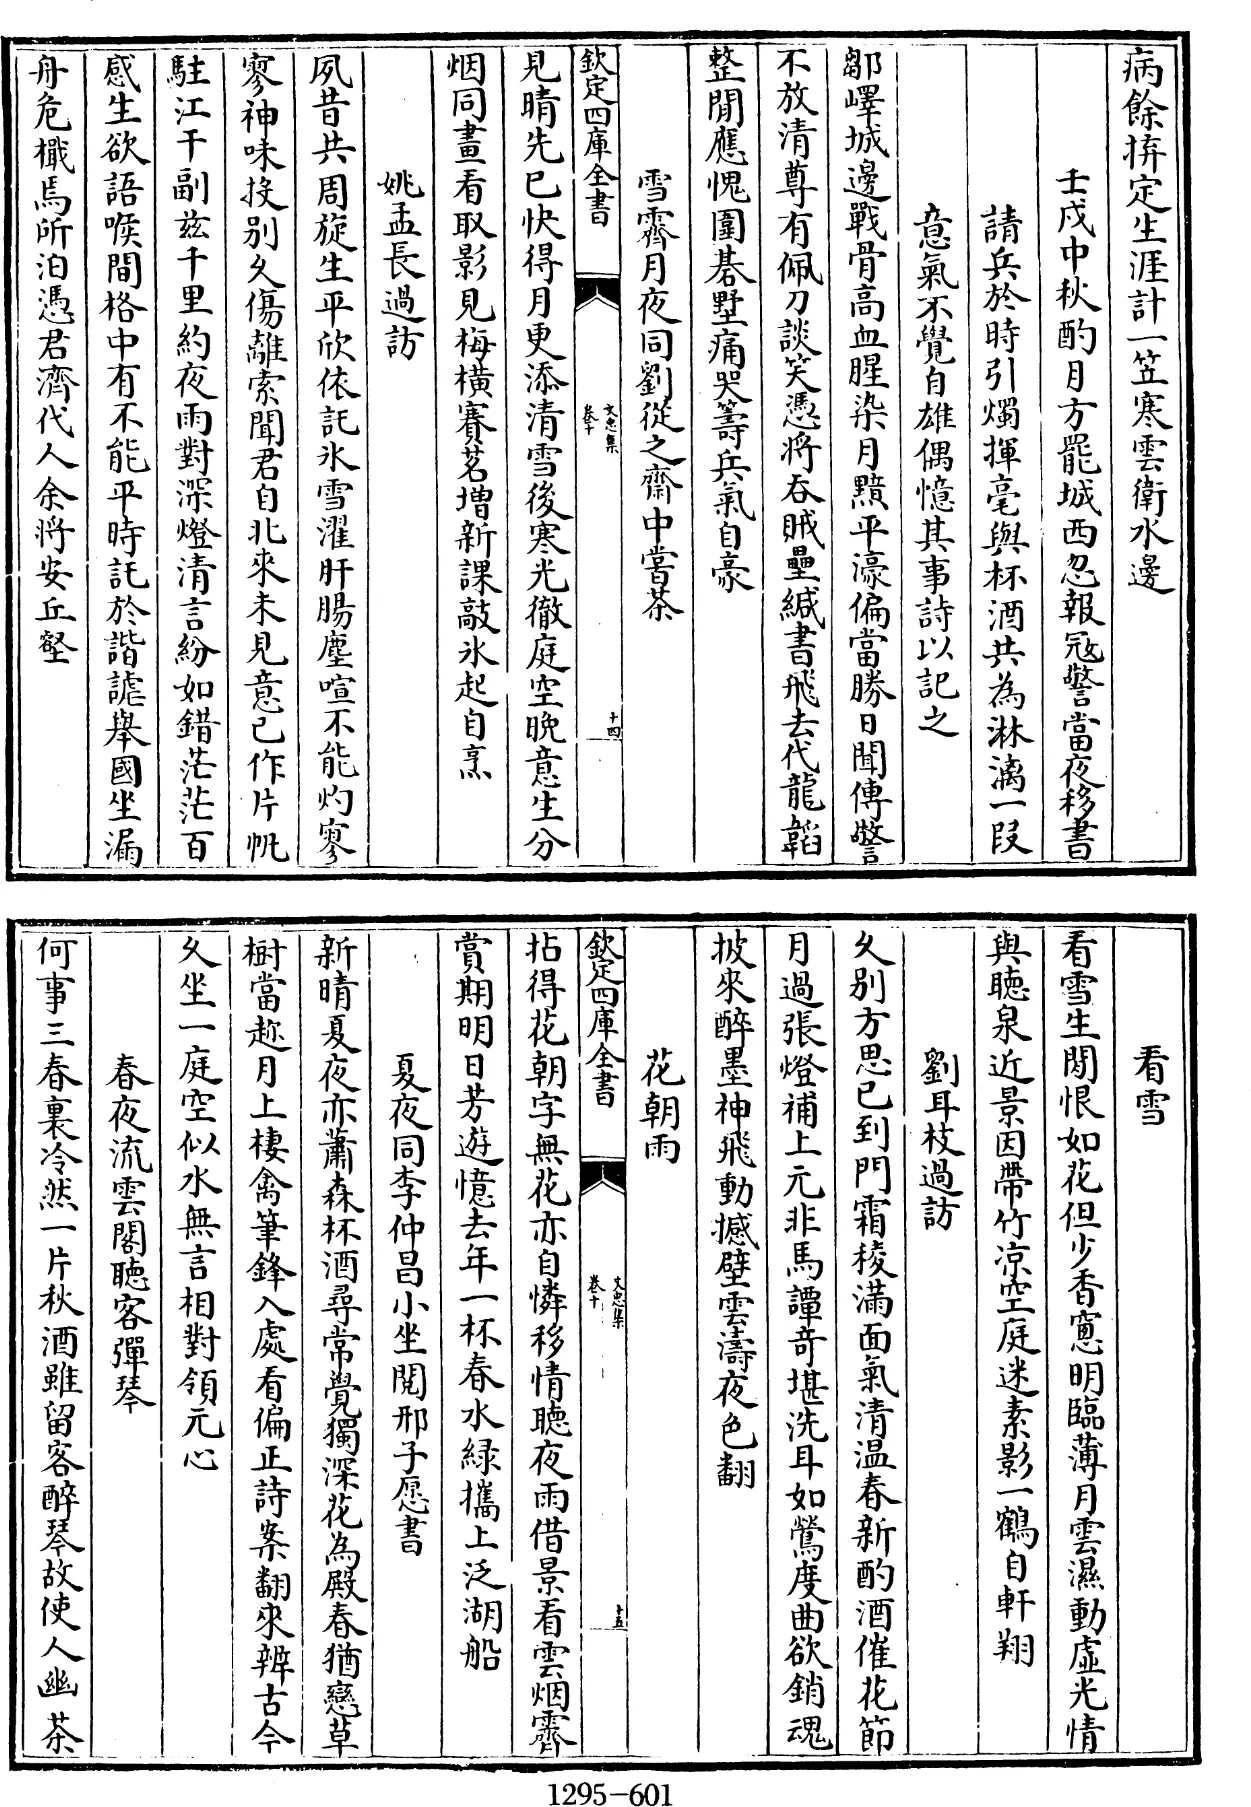 病餘摒定生涯計一笠寒雲衛水邊
壬戌中秋酌月方罷城西忽報冦警當夜移書
請兵於時引燭揮毫與杯酒共為淋漓一段
意氣不覺自雄偶憶其事詩以記之
鄒嶧城邊戰骨高血腥染月黯平濠偏當勝日聞傳警
不放清尊有佩刀談笑憑將吞賊壘緘書飛去代龍韜
整閒應愧圍碁墅痛哭籌兵氣自豪
雪霽月夜同劉從之齋中嘗茶
欽定四庫全書
文忠集
卷十
十四
見晴先已快得月更添清雪後寒光徹庭空晚意生分
烟同畫看取影見梅橫賽茗增新課敲氷起自烹
姚孟長過訪
夙昔共周旋生平欣依託氷雪濯肝腸塵喧不能灼寥
寥神味投别久傷離索聞君自北來未見意已作片帆
駐江干副兹千里約夜雨對深燈清言紛如錯茫茫百
感生欲語喉間格中有不能平時託於諧謔舉國坐漏
舟危檝焉所泊憑君濟代人余將安丘壑
看雪
看雪生閒恨如花但少香窻明臨薄月雲濕動虛光情
與聽泉近景因帶竹凉空庭迷素影一鶴自軒翔
劉耳枝過訪
久别方思已到門霜稜滿面氣清温春新酌酒催花節
月過張燈補上元非馬譚奇堪洗耳如鶯度曲欲銷魂
披來醉墨神飛動撼壁雲濤夜色翻
花朝雨
欽定四庫全書
文忠集
卷十
十五
拈得花朝字無花亦自憐移情聽夜雨借景看雲烟霽
賞期明日芳遊憶去年一杯春水緑攜上泛湖船
夏夜同李仲昌小坐閱邢子愿書
新晴夏夜亦蕭森杯酒尋常覺獨深花為殿春猶戀草
樹當趂月上棲禽筆鋒入處看偏正詩案翻來辨古今
久坐一庭空似水無言相對領元心
春夜流雲閣聽客彈琴
何事三春裏冷然一片秋酒雖留客醉琴故使人幽茶
1295-601